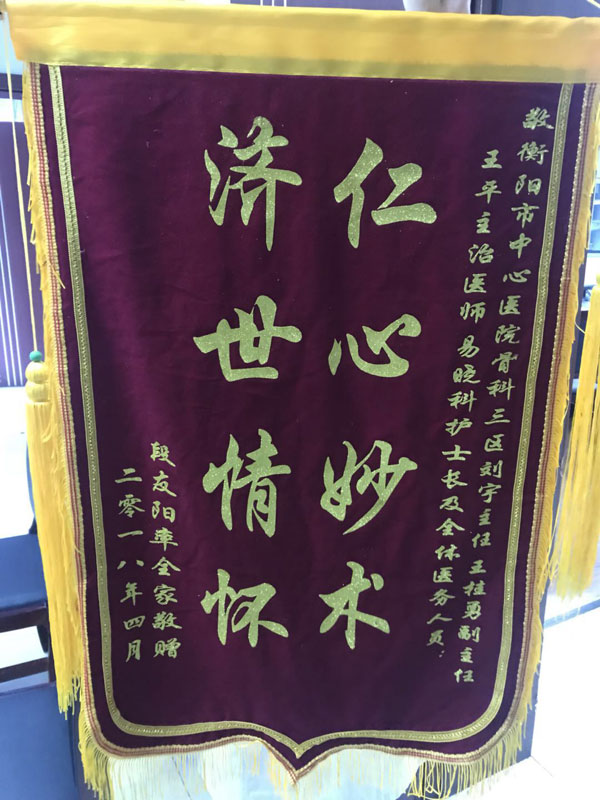 敬衡阳市中心医院骨科三区刘宇主任王桂勇副主任
王平主治医师易晓科护士长及全体医务人员：
仁心妙术
济世情怀
段友阳率全家敬赠
二零一八年四月